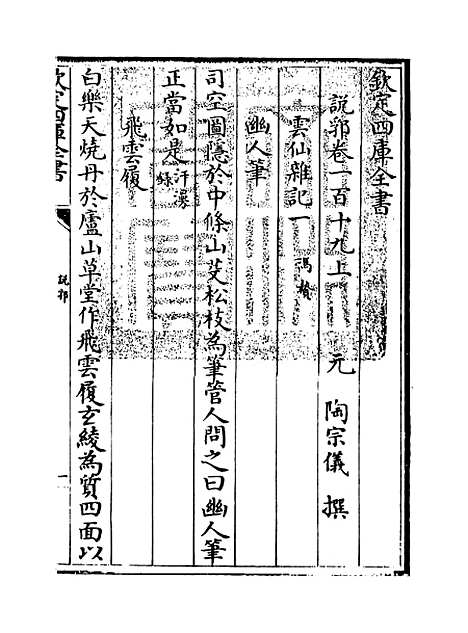 欽定四庫全書
說郛卷一百十九上 元 陶宗儀 撰
雲仙雜記一 馮贄
幽人筆
司空圖隱於中條山芟松枝為筆管人問之曰幽人筆
正當如是 汗漫錄
飛雲履
白樂天燒丹於廬山草堂作飛雲履玄綾為質四面以
欽定四庫全書
說郛
一